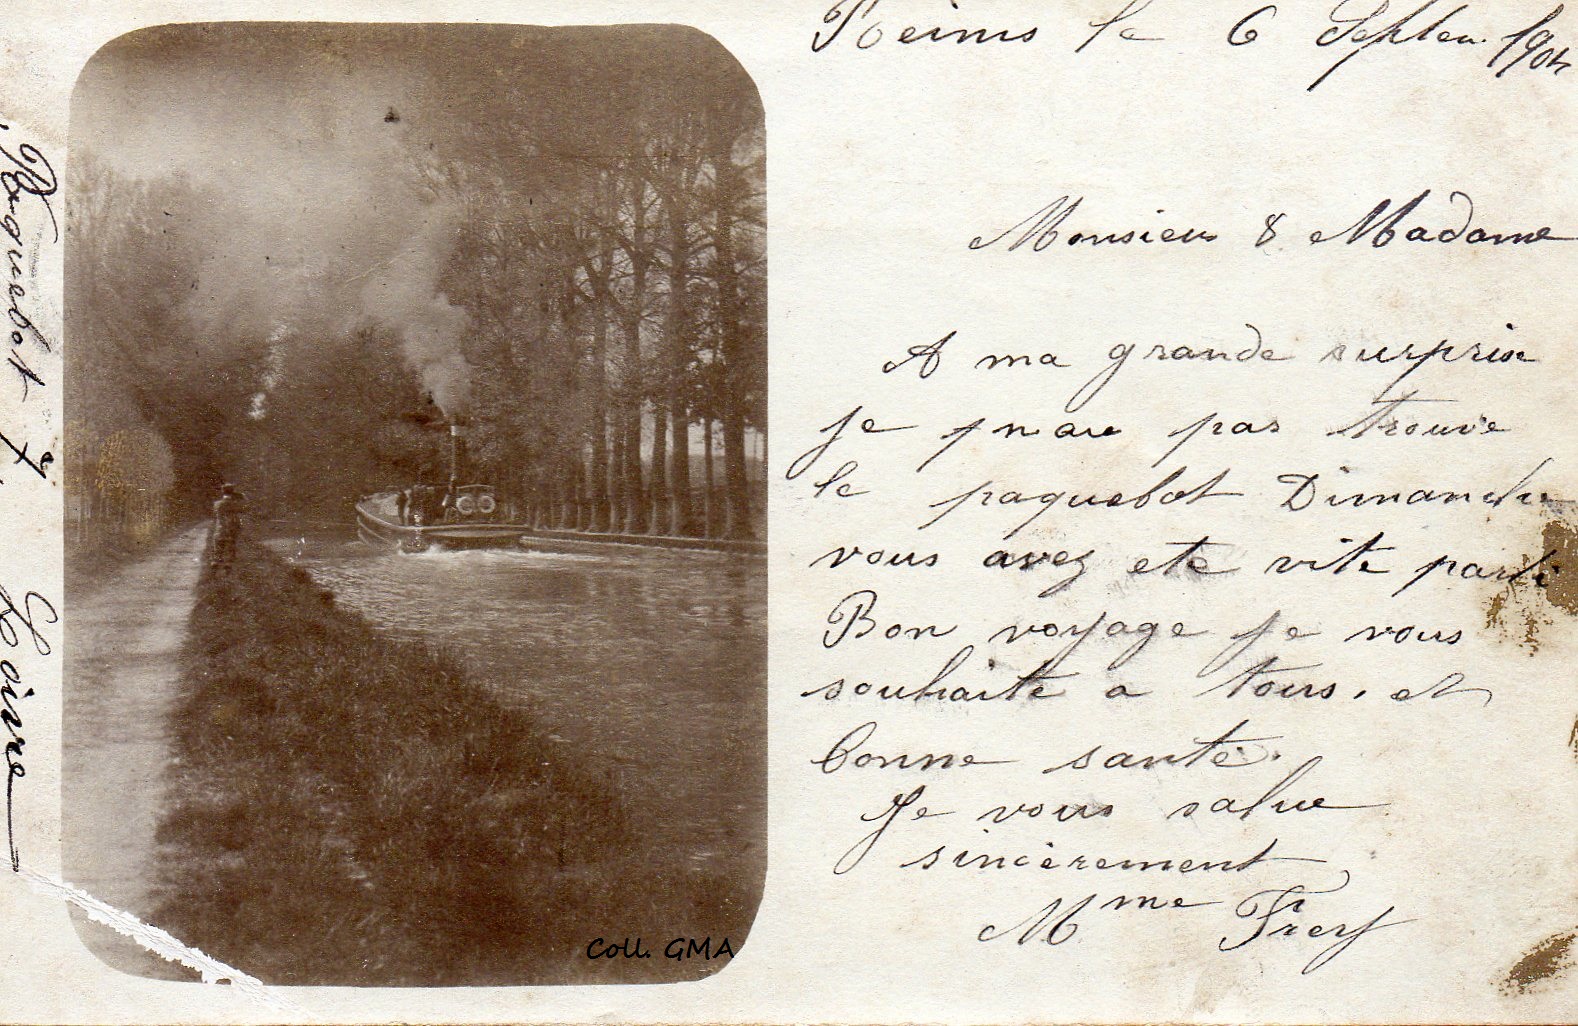 Reims le 6 Septem. 1904
Monsieur & Madame
A ma grande surprise
je n'ai pas trouve
le paquebot Dimanche
vous avez ete vite parti
Bon voyage je vous
souhaite a tous. et
bonne sante.
Je vous salue
sincèrement
Mme Frey
Paquebot 7
Loire
Coll. GMA